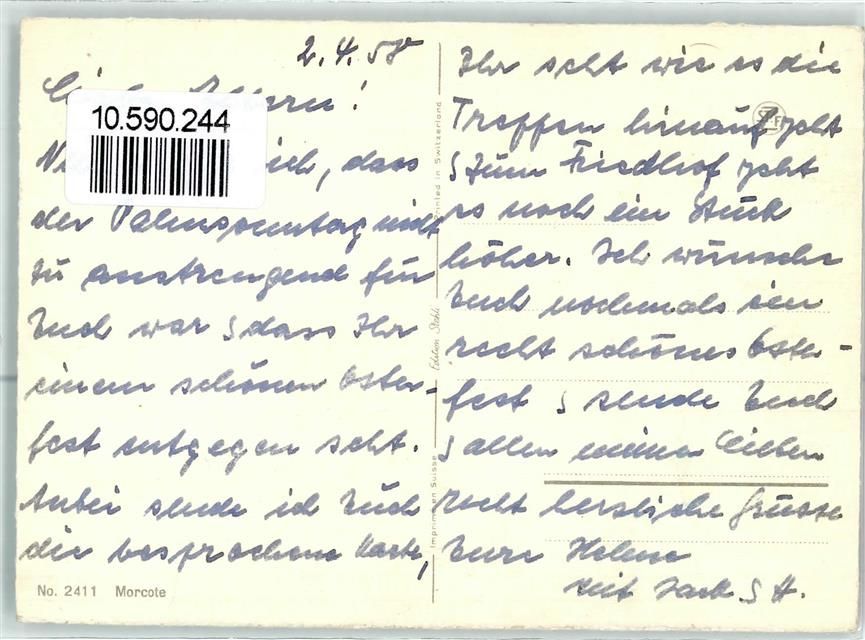 2.4.58
10.590.244
dass
der Palmsonntag nicht
zu anstrengend für
Euch war & dass Ihr
einem schönen Oster-
fest entgegen seht.
Anbei sende ich Euch
die besprochene Karte,
No. 2411 Morcote
Imprimé en Suisse
Edition Stehli
Printed in Switzerland
Ihr seht wie es die
Treppen hinauf geht
& zum Friedhof geht
es noch ein Stück
höher. Ich wünsche
Euch nochmals ein
recht schönes Oster-
fest & sende Euch
& allen meinen Lieben
recht herzliche Grüsse
Eure Helene
mit Jack & H.